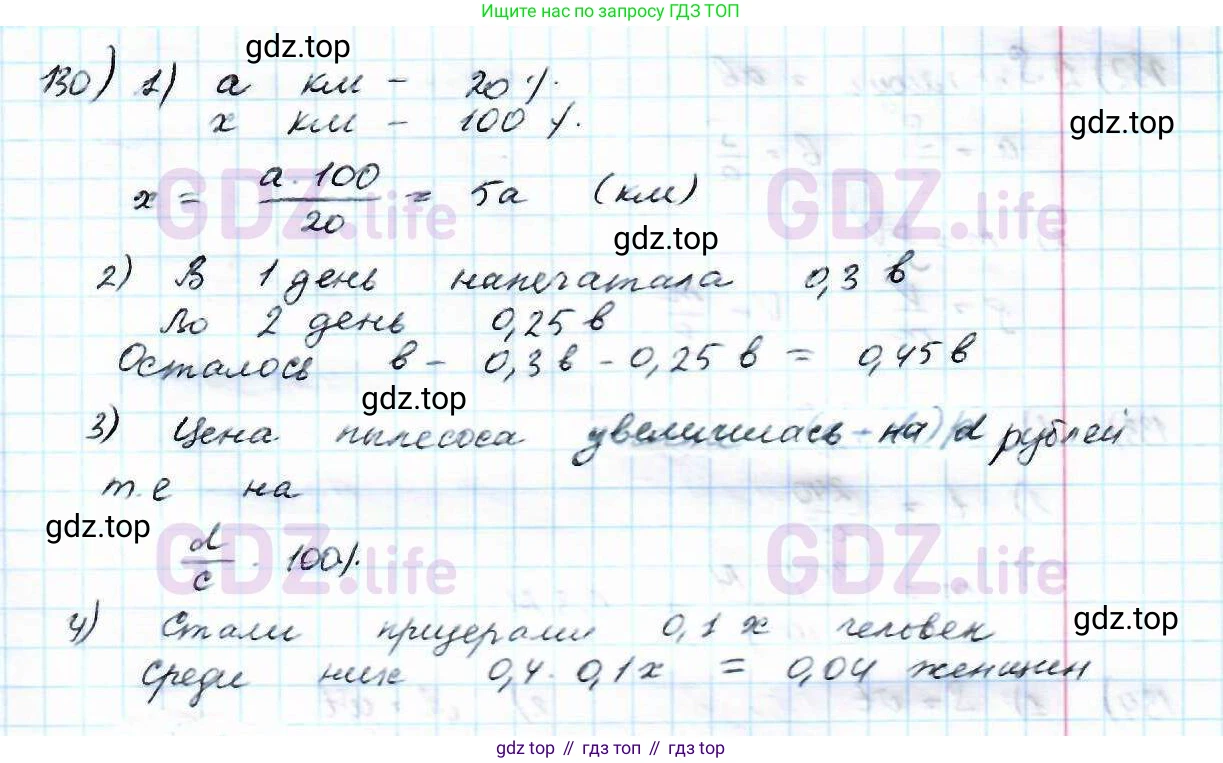 Ищите нас по запросу ГДЗ ТОП
gdz.top
130) 1) а км - 20 %.
х км - 100 %.
gdz.top
x = a · 100 / 20 = 5a (км)
GDZ.life GDZ.life
gdz.top
2) В 1 день напечатала 0,3 в
Во 2 день 0,25 в
Осталось в - 0,3 в - 0,25 в = 0,45 в
gdz.top
3) Цена пылесоса увеличилась на d рублей
т.е на
gdz.top
d/c · 100%.
GDZ.life GDZ.life
gdz.top
4) Стали призерами 0,1 х человек
Среди них 0,4 · 0,1 х = 0,04 женщин
gdz top // гдз топ // gdz top